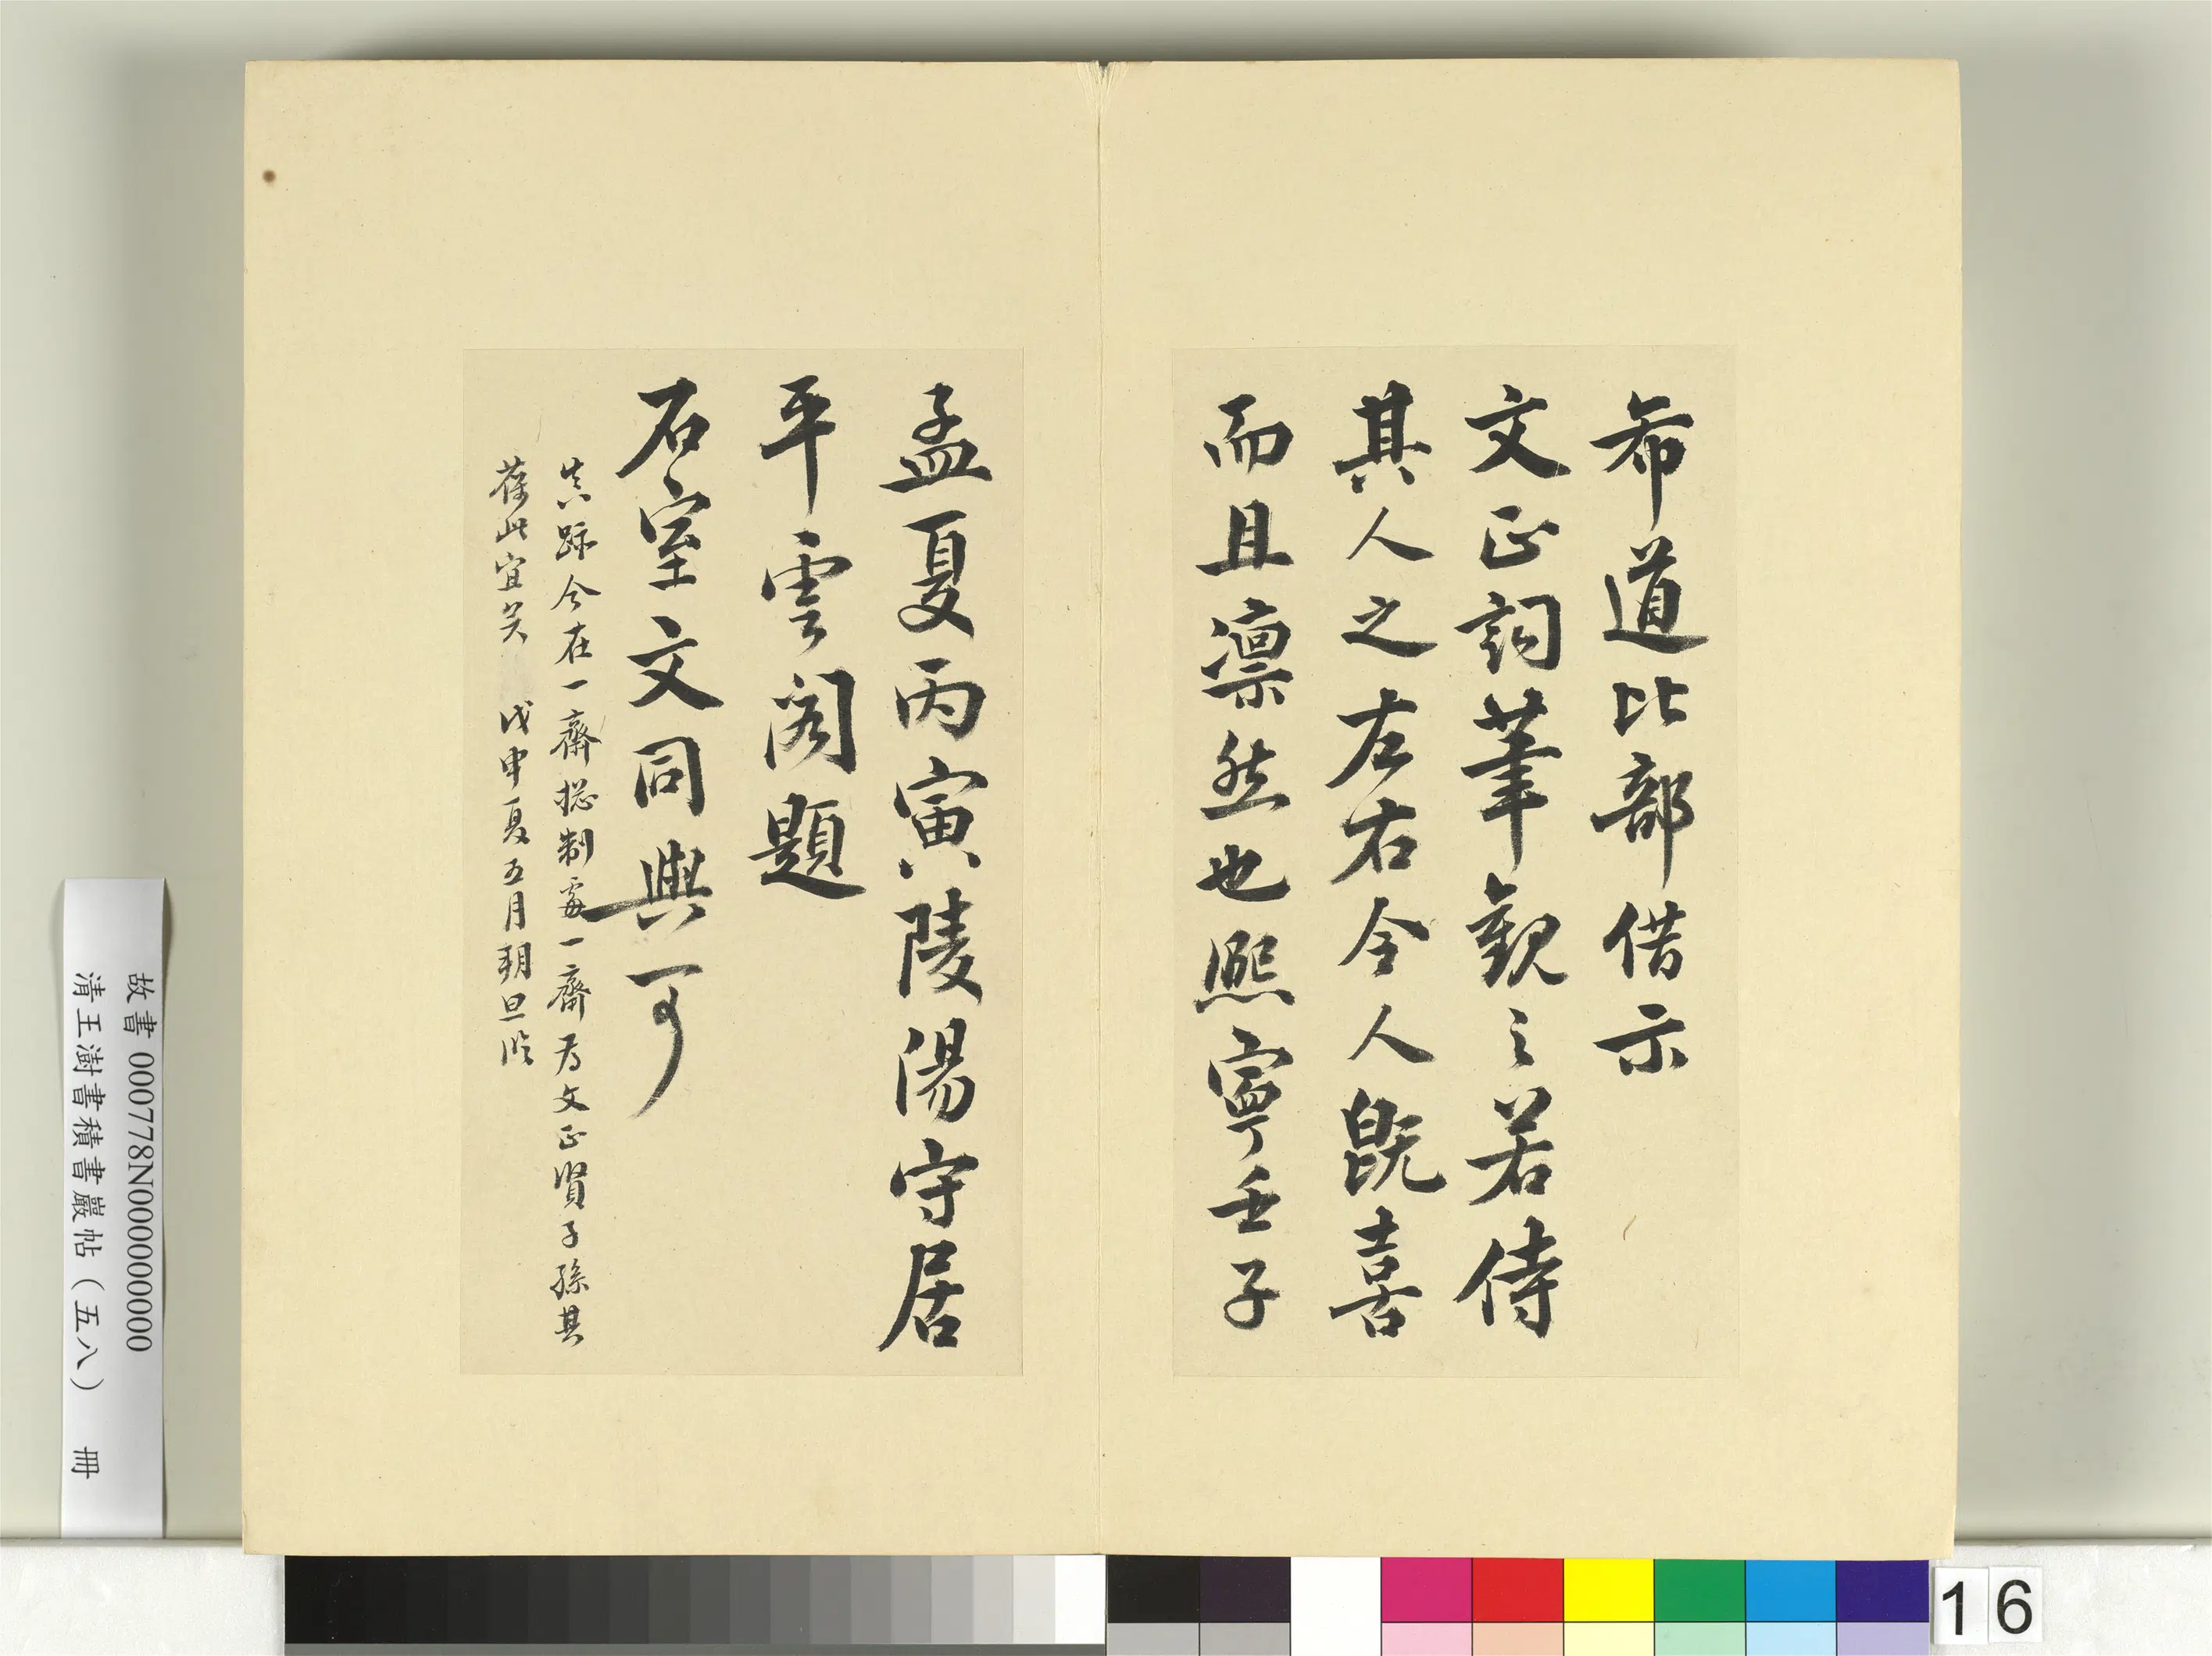 希道比部借示
文正詞筆觀之若侍
其人之左右令人既喜
而且凛然也熙寧壬子
孟夏丙寅陵陽守居
平雲閣題
石室文同與可
真跡今在一齋揔制處一齋為文正賢子孫其
葆此宜矣 戊申夏五月朔旦臨
故書 000778N000000000
清王澍書積書巖帖（五八） 冊
16